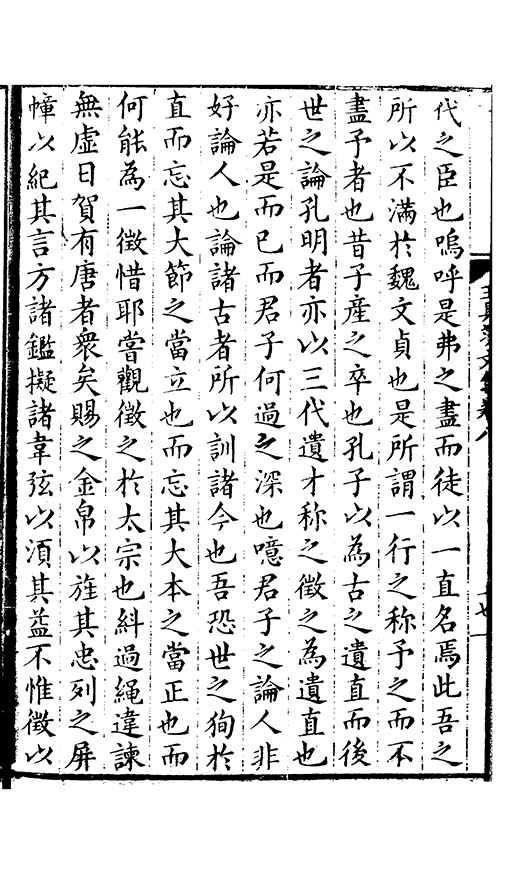 代之臣也嗚呼是弗之盡而徒以一直名焉此吾之
所以不滿於魏文貞也是所謂一行之称予之而不
盡予者也昔子産之卒也孔子以為古之遺直而後
世之論孔明者亦以三代遺才称之徵之為遺直也
亦若是而已而君子何過之深也噫君子之論人非
好論人也論諸古者所以訓諸今也吾恐世之狥於
直而忘其大節之當立也而忘其大本之當正也而
何能為一徵惜耶嘗觀徵之於太宗也糾過繩違諫
無虚日賀有唐者衆矣賜之金帛以旌其忠列之屏
幛以紀其言方諸鑑擬諸韋弦以湏其益不惟徵以
文集卷八